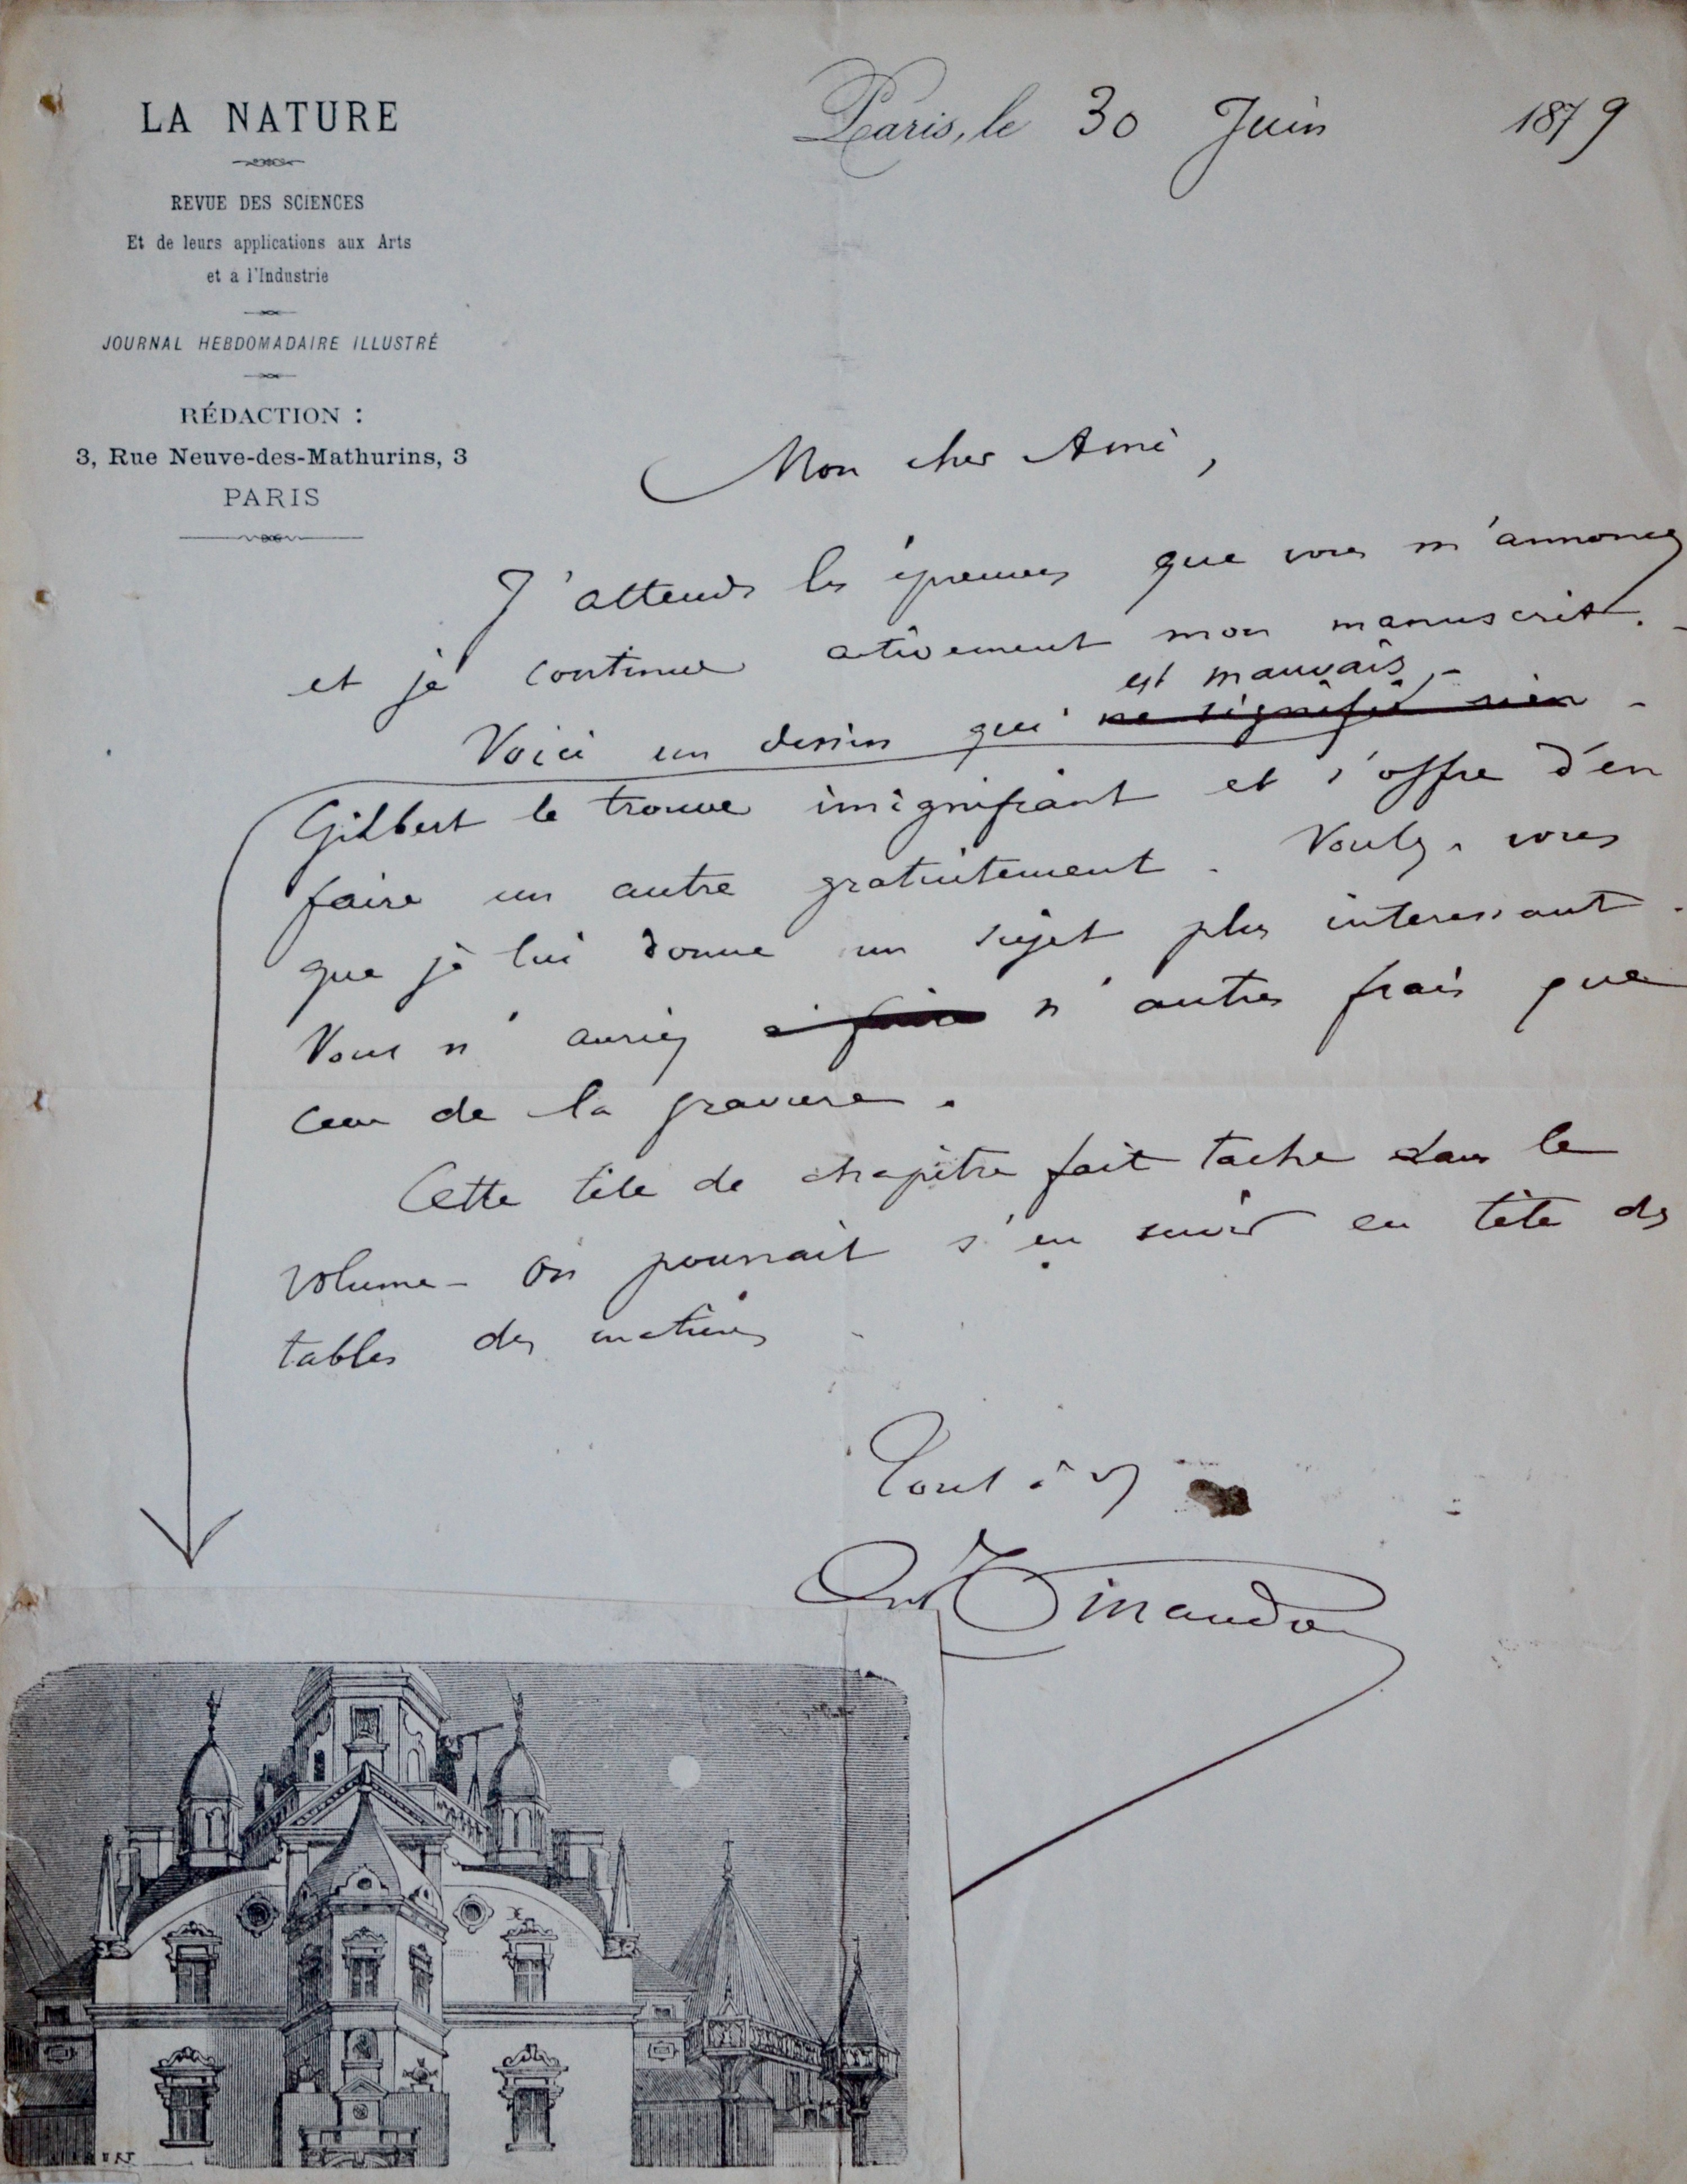 LA NATURE
REVUE DES SCIENCES
Et de leurs applications aux Arts
et à l'Industrie
JOURNAL HEBDOMADAIRE ILLUSTRÉ
RÉDACTION :
3, Rue Neuve-des-Mathurins, 3
PARIS
Paris, le 30 Juin 1879
Mon cher Ami,
J'attends les épreuves que vous m'annoncez
et je continue activement mon manuscrit. -
est mauvais, -
Voici un dessin qui ne signifie rien -
Gilbert le trouve insignifiant et s'offre d'en
faire un autre gratuitement. Voulez-vous
que je lui donne un sujet plus interessant.
Vous n'auriez à faire n'autres frais que
ceux de la gravure.
Cette tête de chapitre fait tache dans le
volume - On pourrait s'en servir en tête des
tables des matières
Tout à v